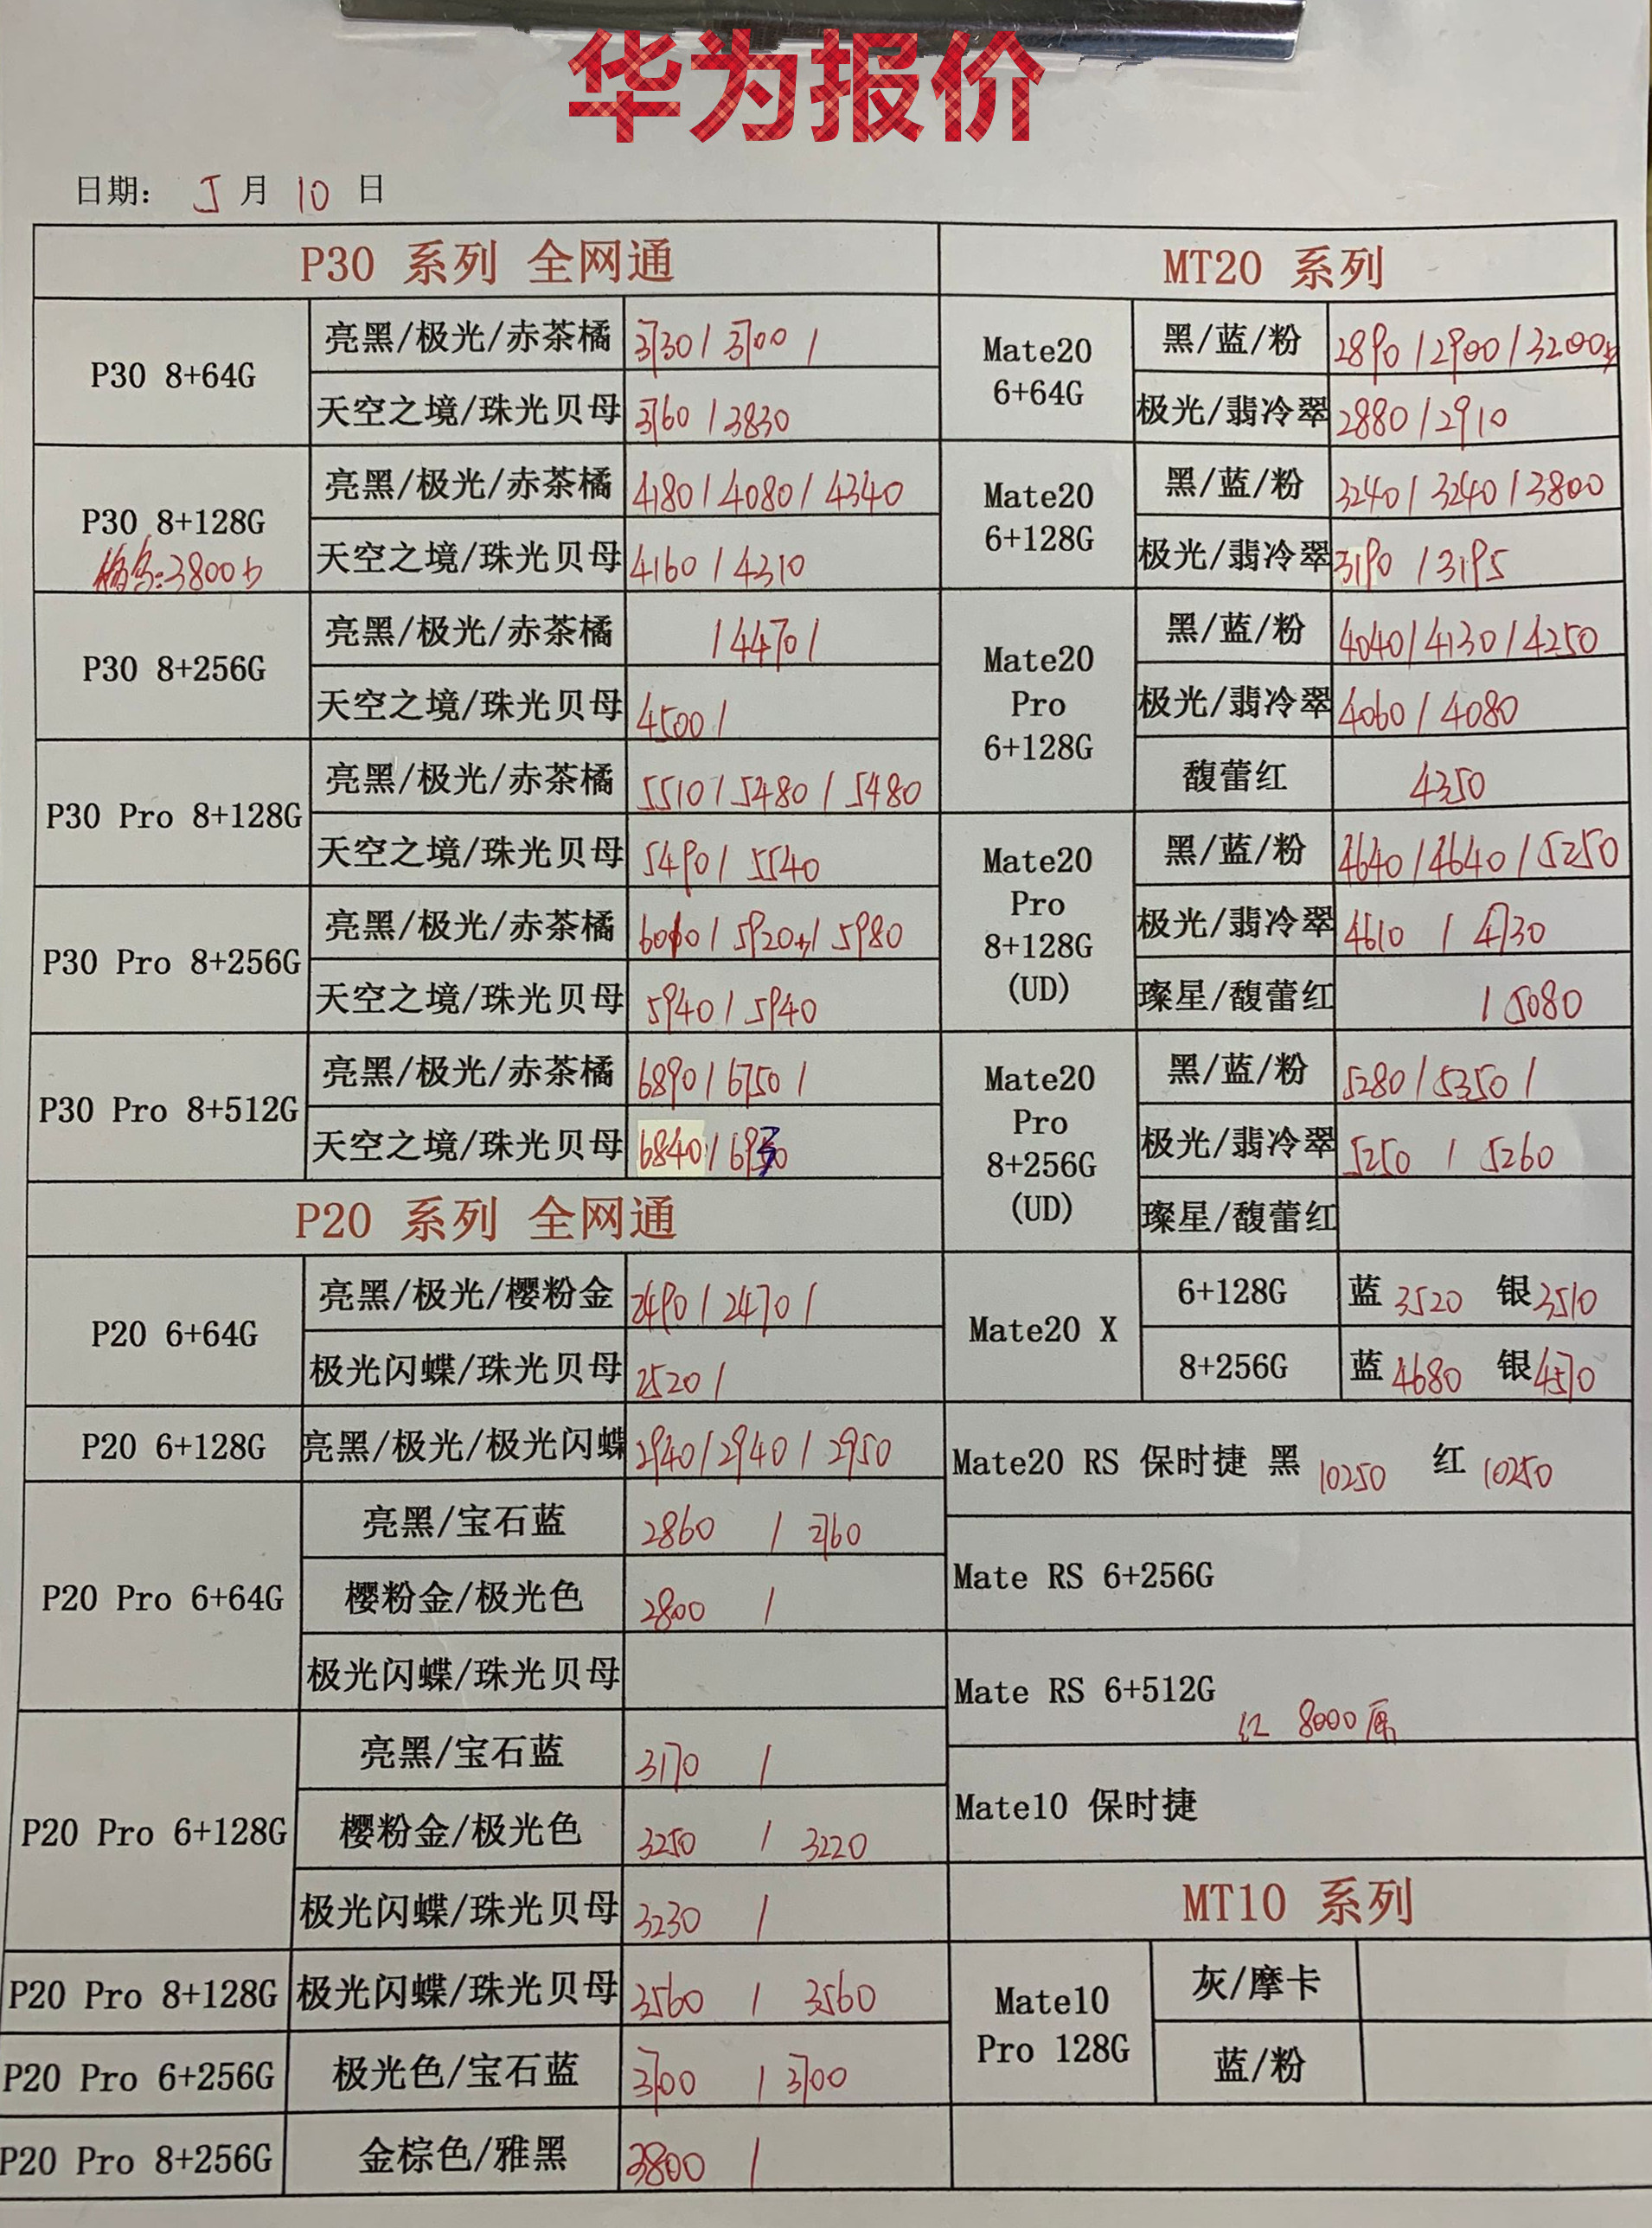 华为报价
日期： 5 月 10 日
P30 系列 全网通
P30 8+64G
亮黑/极光/赤茶橘 3730 / 3700 /
天空之境/珠光贝母 3760 / 3830
P30 8+128G
3800
亮黑/极光/赤茶橘 4180 / 4080 / 4340
天空之境/珠光贝母 4160 / 4310
P30 8+256G
亮黑/极光/赤茶橘 / 4470 /
天空之境/珠光贝母 4500 /
P30 Pro 8+128G
亮黑/极光/赤茶橘 5510 / 5480 / 5480
天空之境/珠光贝母 5490 / 5540
P30 Pro 8+256G
亮黑/极光/赤茶橘 / 5920 / 5980
天空之境/珠光贝母 5940 / 5940
P30 Pro 8+512G
亮黑/极光/赤茶橘 6890 / 6750 /
天空之境/珠光贝母 6840 /
P20 系列 全网通
P20 6+64G
亮黑/极光/樱粉金 2490 / 2470 /
极光闪蝶/珠光贝母 2520 /
P20 6+128G
亮黑/极光/极光闪蝶 2940 / 2940 / 2950
P20 Pro 6+64G
亮黑/宝石蓝 2860 / 2760
樱粉金/极光色 2800 /
极光闪蝶/珠光贝母
P20 Pro 6+128G
亮黑/宝石蓝 3170 /
樱粉金/极光色 3250 / 3220
极光闪蝶/珠光贝母 3230 /
P20 Pro 8+128G
极光闪蝶/珠光贝母 3560 / 3560
P20 Pro 6+256G
极光色/宝石蓝 3700 / 3700
P20 Pro 8+256G
金棕色/雅黑 3800 /
MT20 系列
Mate20
6+64G
黑/蓝/粉 2890 / 2900 / 3200
极光/翡冷翠 2880 / 2910
Mate20
6+128G
黑/蓝/粉 3240 / 3240 / 3800
极光/翡冷翠 3190 / 3195
Mate20
Pro
6+128G
黑/蓝/粉 4040 / 4130 / 4250
极光/翡冷翠 4060 / 4080
馥蕾红 4350
Mate20
Pro
8+128G
(UD)
黑/蓝/粉 4640 / 4640 / 5250
极光/翡冷翠 4610 / 4730
璨星/馥蕾红 / 5080
Mate20
Pro
8+256G
(UD)
黑/蓝/粉 5280 / 5350 /
极光/翡冷翠 5250 / 5260
璨星/馥蕾红
Mate20 X
6+128G 蓝 3520 银 3510
8+256G 蓝 4680 银 4570
Mate20 RS 保时捷 黑 10250 红 10250
Mate RS 6+256G
Mate RS 6+512G
红 8000
Mate10 保时捷
MT10 系列
Mate10
Pro 128G
灰/摩卡
蓝/粉